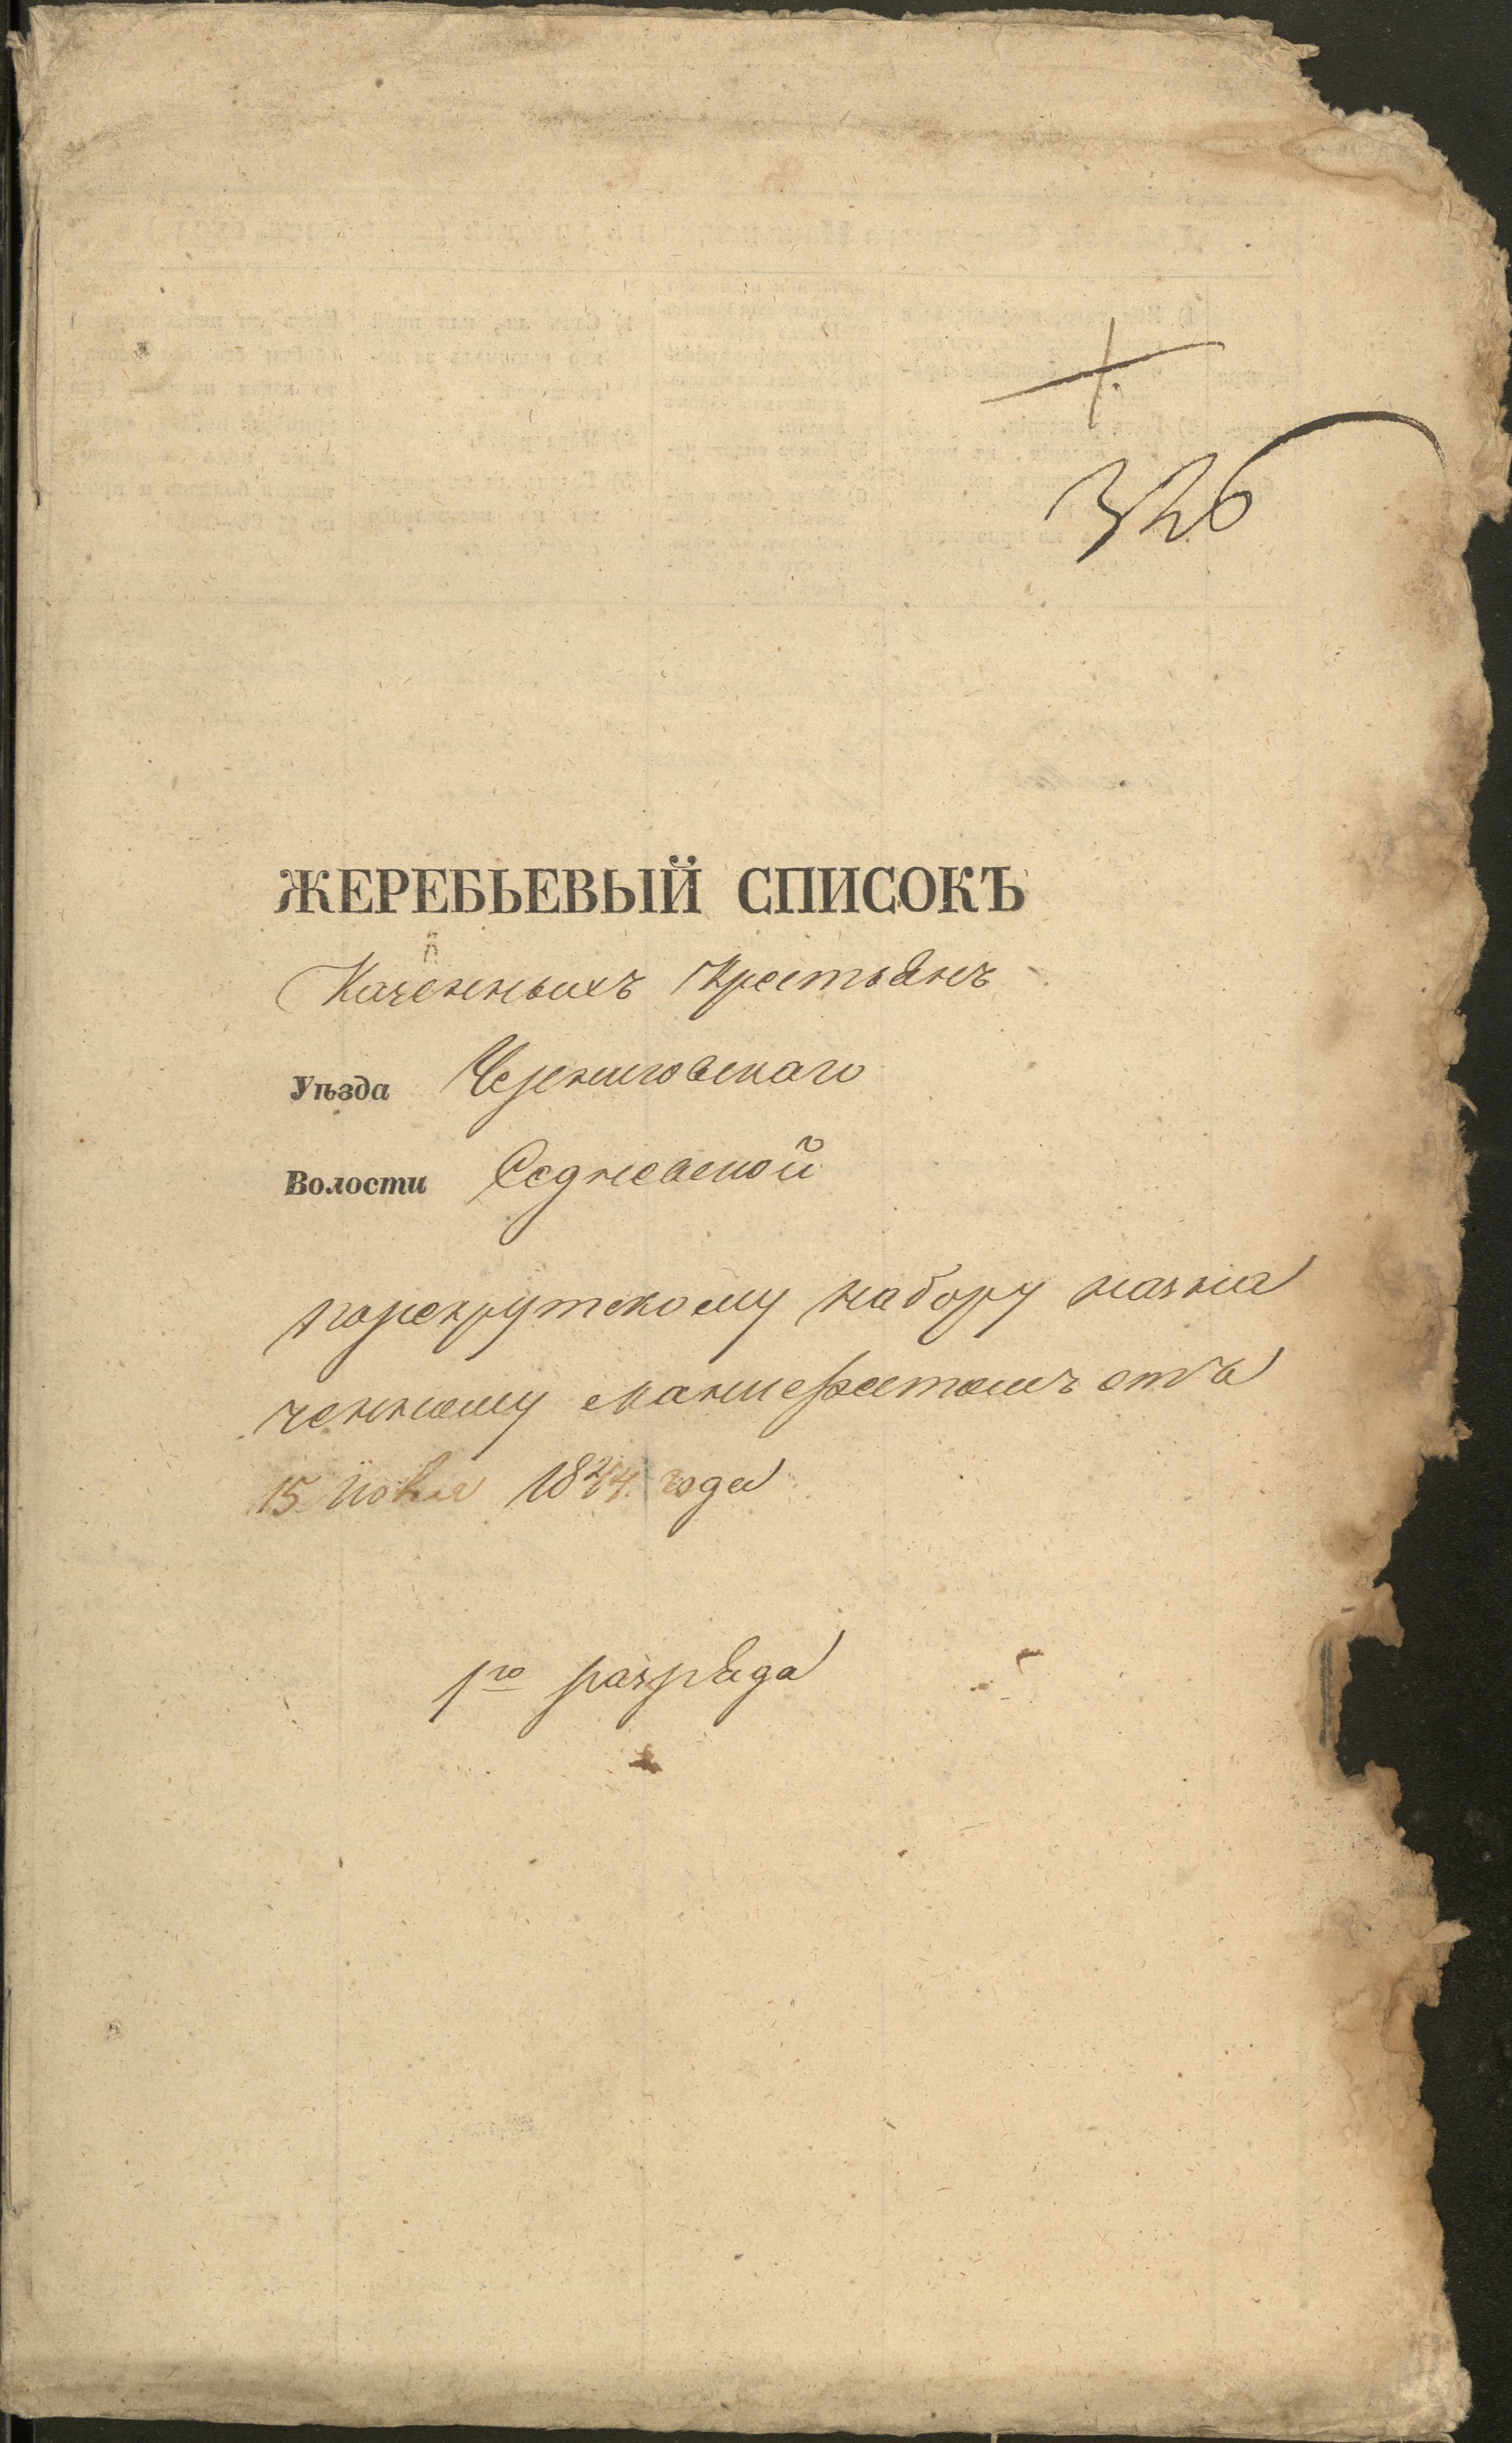 326
ЖЕРЕБЬЕВЫЙ СПИСОКЪ
Казенныхъ Крестьянъ
Уѣзда Черниговскаго
Волости Седневской
порекрутскому набору назна
ченному манифестомъ отъ
15 Июля 1844. года
1го разряда